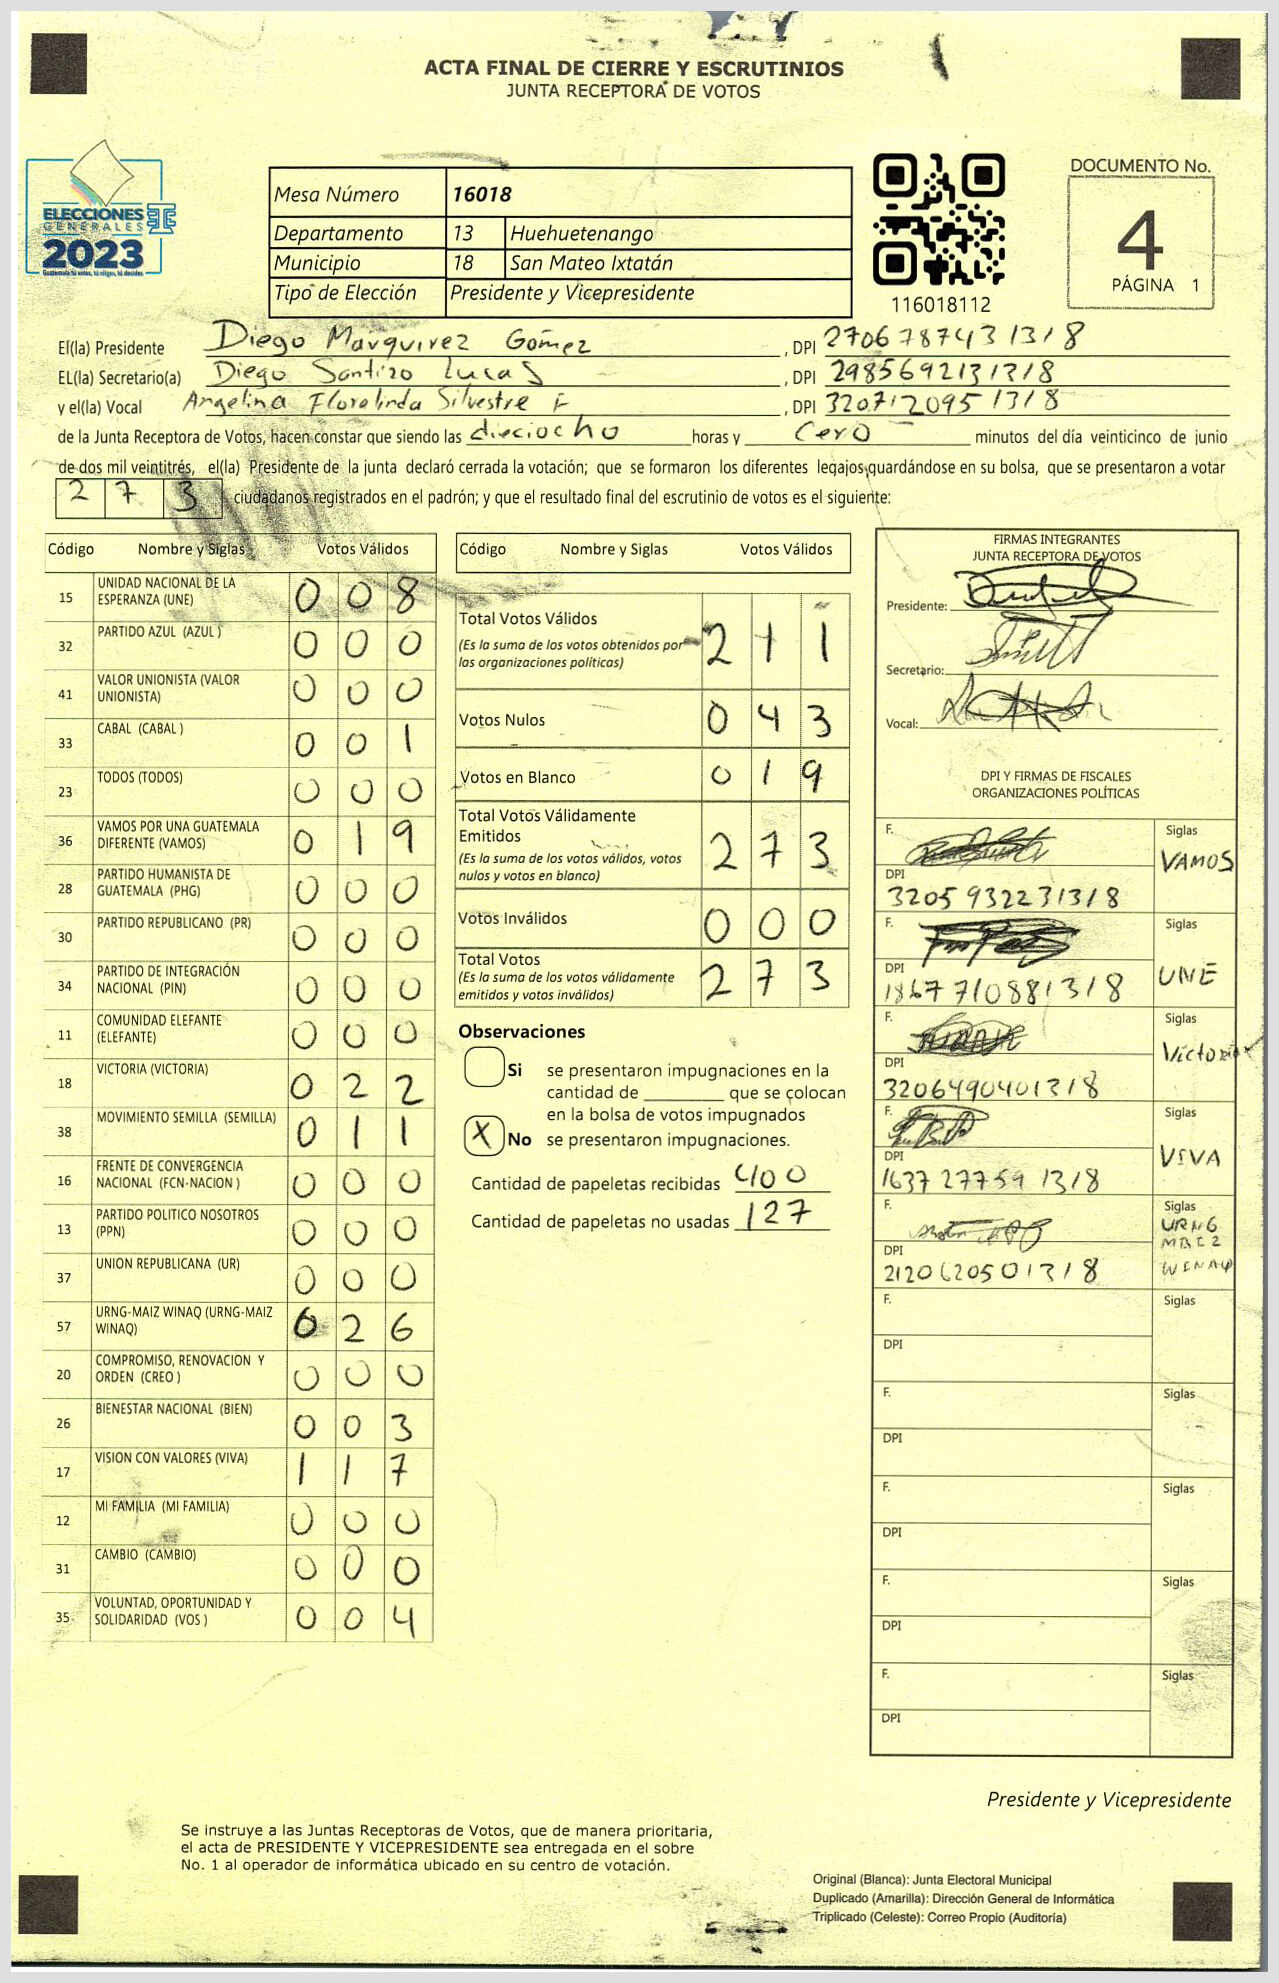 ACTA FINAL DE CIERRE Y ESCRUTINIOS
JUNTA RECEPTORA DE VOTOS
ELECCIONES
GENERALES
2023
Guatemala tú votas, tú eliges, tú decides
Mesa Número 16018
Departamento 13 Huehuetenango
Municipio 18 San Mateo Ixtatán
Tipo de Elección Presidente y Vicepresidente
116018112
DOCUMENTO No.
4
PÁGINA 1
El(la) Presidente Diego Marquirez Gomez, DPI 2706787431318
EL(la) Secretario(a) Diego Santizo Lucas, DPI 2985692131318
y el(la) Vocal Angelina Floralinda Silvestre F, DPI 3207120951318
de la Junta Receptora de Votos, hacen constar que siendo las dieciocho horas y cero minutos del día veinticinco de junio
de dos mil veintitrés, el(la) Presidente de la junta declaró cerrada la votación; que se formaron los diferentes legajos, guardándose en su bolsa, que se presentaron a votar
273 ciudadanos registrados en el padrón; y que el resultado final del escrutinio de votos es el siguiente:
Código Nombre y Siglas Votos Válidos
15 UNIDAD NACIONAL DE LA ESPERANZA (UNE) 008
32 PARTIDO AZUL (AZUL ) 000
41 VALOR UNIONISTA (VALOR UNIONISTA) 000
33 CABAL (CABAL ) 001
23 TODOS (TODOS) 000
36 VAMOS POR UNA GUATEMALA DIFERENTE (VAMOS) 019
28 PARTIDO HUMANISTA DE GUATEMALA (PHG) 000
30 PARTIDO REPUBLICANO (PR) 000
34 PARTIDO DE INTEGRACIÓN NACIONAL (PIN) 000
11 COMUNIDAD ELEFANTE (ELEFANTE) 000
18 VICTORIA (VICTORIA) 022
38 MOVIMIENTO SEMILLA (SEMILLA) 011
16 FRENTE DE CONVERGENCIA NACIONAL (FCN-NACION ) 000
13 PARTIDO POLITICO NOSOTROS (PPN) 000
37 UNION REPUBLICANA (UR) 000
57 URNG-MAIZ WINAQ (URNG-MAIZ WINAQ) 026
20 COMPROMISO, RENOVACION Y ORDEN (CREO ) 000
26 BIENESTAR NACIONAL (BIEN) 003
17 VISION CON VALORES (VIVA) 117
12 MI FAMILIA (MI FAMILIA) 000
31 CAMBIO (CAMBIO) 000
35 VOLUNTAD, OPORTUNIDAD Y SOLIDARIDAD (VOS ) 004
Código Nombre y Siglas Votos Válidos
Total Votos Válidos 211
(Es la suma de los votos obtenidos por
las organizaciones políticas)
Votos Nulos 043
Votos en Blanco 019
Total Votos Válidamente
Emitidos 273
(Es la suma de los votos válidos, votos
nulos y votos en blanco)
Votos Inválidos 000
Total Votos 273
(Es la suma de los votos válidamente
emitidos y votos inválidos)
Observaciones
Si se presentaron impugnaciones en la
cantidad de ________ que se colocan
en la bolsa de votos impugnados
X No se presentaron impugnaciones.
Cantidad de papeletas recibidas 400
Cantidad de papeletas no usadas 127
FIRMAS INTEGRANTES
JUNTA RECEPTORA DE VOTOS
Presidente:
Secretario:
Vocal:
DPI Y FIRMAS DE FISCALES
ORGANIZACIONES POLÍTICAS
F. Siglas
VAMOS
DPI
3205932231318
F. Siglas
UNE
DPI
1867710881318
F. Siglas
Victoria
DPI
3206490401318
F. Siglas
VIVA
DPI
1637277591318
F. Siglas
URNG
WINAQ
DPI
2120620501318
F. Siglas
DPI
F. Siglas
DPI
F. Siglas
DPI
F. Siglas
DPI
F. Siglas
DPI
Presidente y Vicepresidente
Se instruye a las Juntas Receptoras de Votos, que de manera prioritaria,
el acta de PRESIDENTE Y VICEPRESIDENTE sea entregada en el sobre
No. 1 al operador de informática ubicado en su centro de votación.
Original (Blanca): Junta Electoral Municipal
Duplicado (Amarilla): Dirección General de Informática
Triplicado (Celeste): Correo Propio (Auditoría)